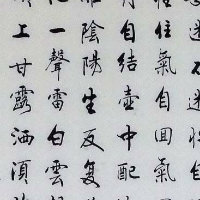 迷不迷性自
住氣自回氣
丹自結壺中配
離陰陽生反复
化一聲雷白雲
上甘露洒須